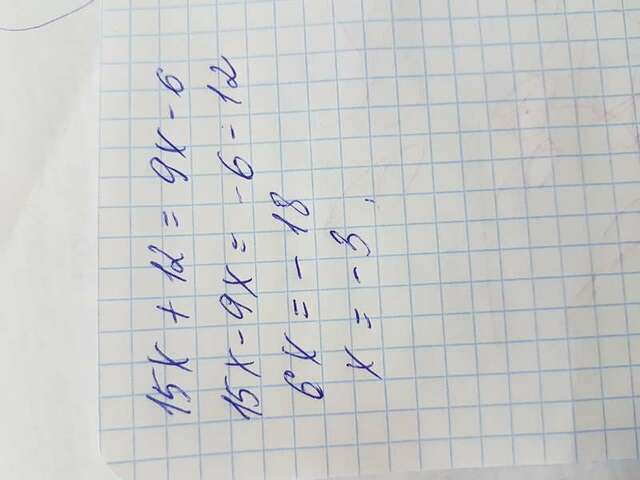 15x + 12 = 9x - 6
15x - 9x = -6 - 12
6x = -18
x = -3.